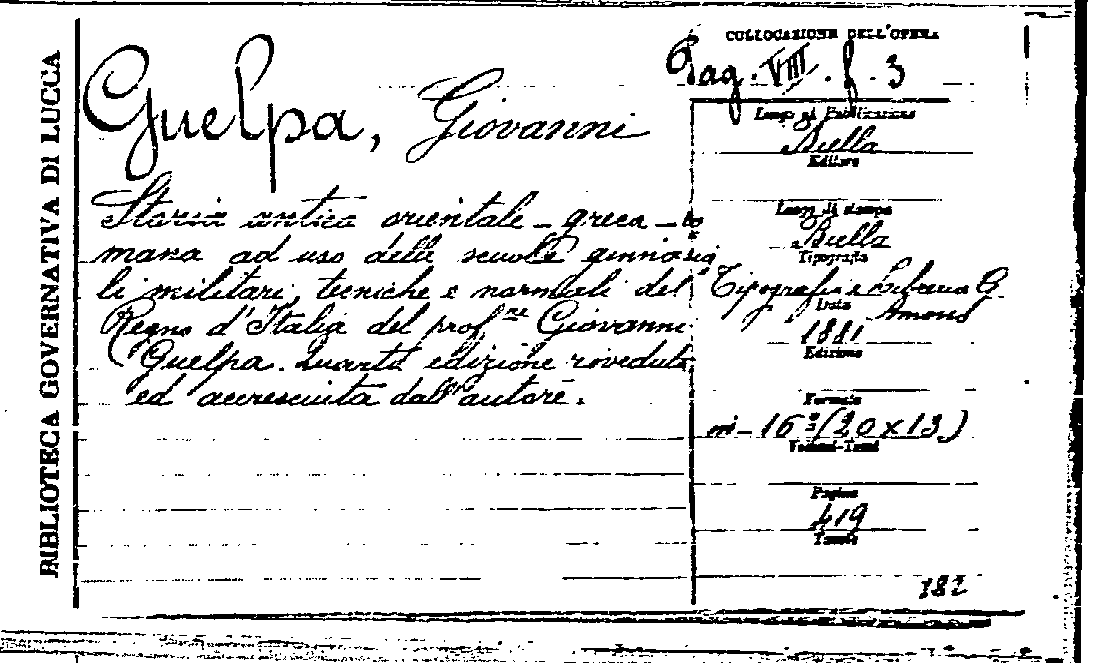 BIBLIOTECA GOVERNATIVA DI LUCCA
COLLOCAZIONE DELL'OPERA
Pag. VIII. f. 3
Guelpa, Giovanni
Storia antica orientale - greca - ro
mana ad uso delle scuole ginnasia
li militari, tecniche e normali del
Regno d'Italia del prof.re Giovanni
Guelpa. Quarta edizione riveduta
ed accresciuta dall'autore.
Luogo di Pubblicazione
Biella
Editore
Luogo di stampa
Biella
Tipografia
Tipografia e Libreria G.
Amosso
Data
1881
Edizione
Formato
in-16° (20 x 13)
Volumi-Tomi
Pagine
419
Tavole
182